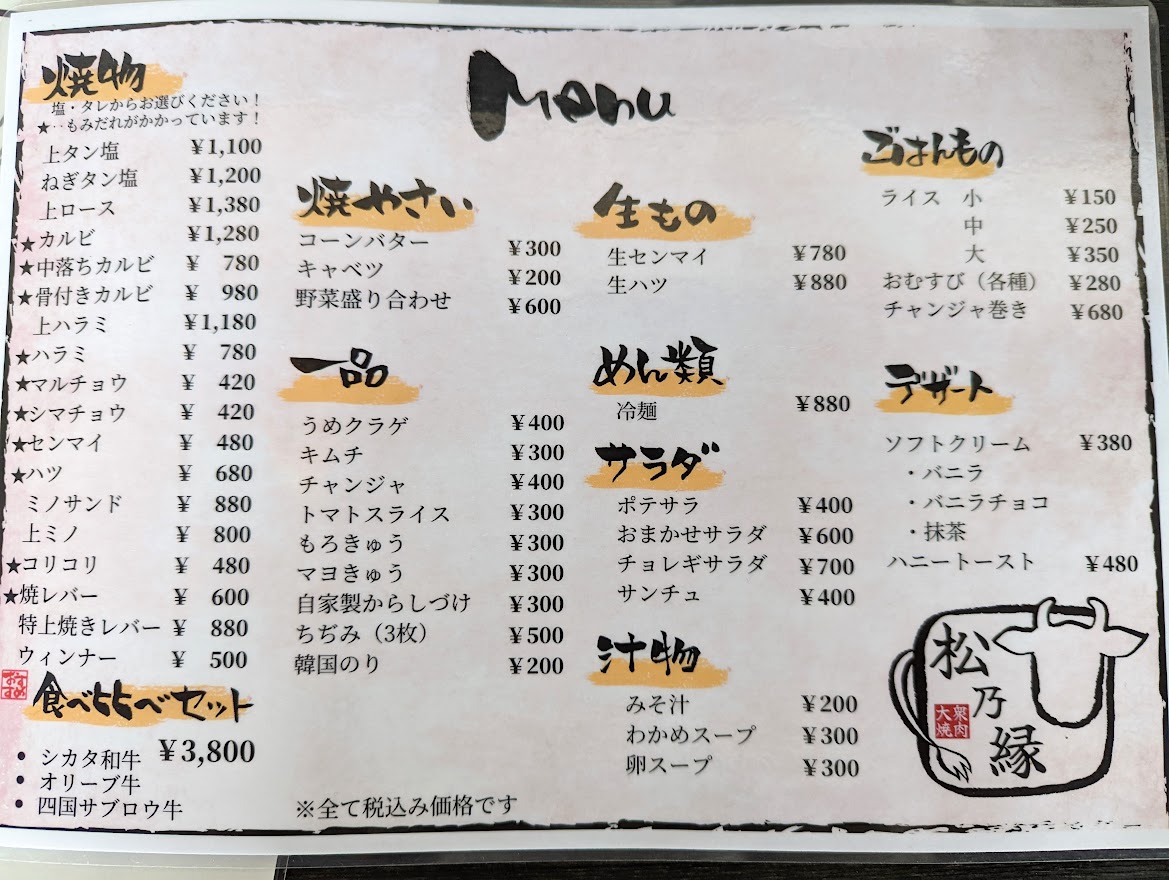 Menu
焼物
塩・タレからお選びください！
★‥もみだれがかかっています！
上タン塩 ¥1,100
ねぎタン塩 ¥1,200
上ロース ¥1,380
★カルビ ¥1,280
★中落ちカルビ ¥ 780
★骨付きカルビ ¥ 980
上ハラミ ¥1,180
★ハラミ ¥ 780
★マルチョウ ¥ 420
★シマチョウ ¥ 420
★センマイ ¥ 480
★ハツ ¥ 680
ミノサンド ¥ 880
上ミノ ¥ 800
★コリコリ ¥ 480
★焼レバー ¥ 600
特上焼きレバー ¥ 880
ウィンナー ¥ 500
おすすめ
食べ比べセット
¥3,800
• シカタ和牛
• オリーブ牛
• 四国サブロウ牛
焼やさい
コーンバター ¥300
キャベツ ¥200
野菜盛り合わせ ¥600
一品
うめクラゲ ¥400
キムチ ¥300
チャンジャ ¥400
トマトスライス ¥300
もろきゅう ¥300
マヨきゅう ¥300
自家製からしづけ ¥300
ちぢみ（3枚） ¥500
韓国のり ¥200
※全て税込み価格です
生もの
生センマイ ¥780
生ハツ ¥880
めん類
冷麺 ¥880
サラダ
ポテサラ ¥400
おまかせサラダ ¥600
チョレギサラダ ¥700
サンチュ ¥400
汁物
みそ汁 ¥200
わかめスープ ¥300
卵スープ ¥300
ごはんもの
ライス 小 ¥150
中 ¥250
大 ¥350
おむすび（各種） ¥280
チャンジャ巻き ¥680
デザート
ソフトクリーム ¥380
・バニラ
・バニラチョコ
・抹茶
ハニートースト ¥480
松乃縁
大衆焼肉